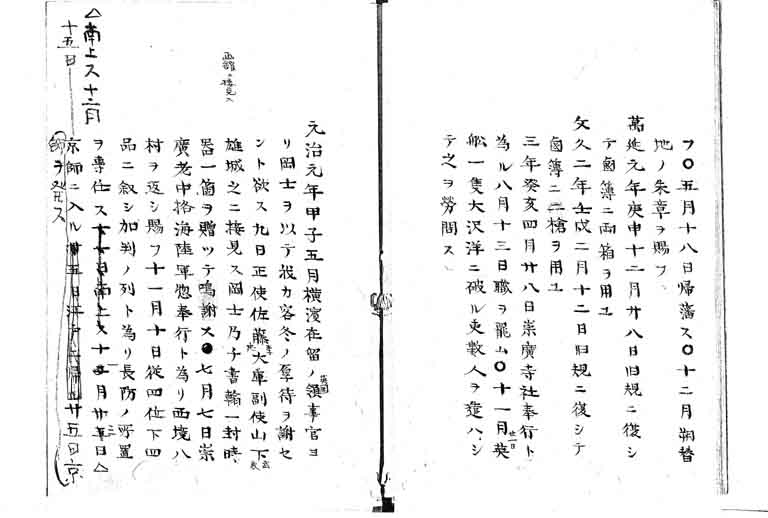 フ〇五月十八日帰藩ス〇十二月朔替
地ノ朱章ヲ賜フ
萬延元年庚申十二月廿八日旧規ニ復シ
テ鹵簿ニ両箱ヲ用ユ
文久二年壬戌二月十二日旧規ニ復シテ
鹵簿ニ二槍ヲ用ユ
三年癸亥四月廿八日崇廣寺社奉行ト
為ル八月十三日職ヲ罷ム〇十一月廿一日英
船一隻大沢洋ニ破ル吏数人ヲ遣ハシ
テ之ヲ労問ス
元治元年甲子五月横濱在留ノ英国領事官ヨ
リ岡士ヲ以テ客冬ノ厚待ヲ謝セ
ント欲ス九日正使佐藤大庫副使山下
雄城之ニ接見ス岡士乃チ書翰一封時
器一箇ヲ贈ツテ鳴謝ス●七月七日崇
廣老中格海陸軍惣奉行ト為リ西境八
村ヲ返シ賜フ十一月十日従四位下四
品ニ叙シ加判ノ列ト為リ長防ノ所置
ヲ専任ス
京師ニ入ル廿五日京
師ヲ発ス
△南上ス十二月
十五日